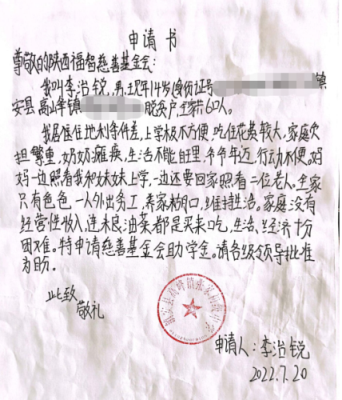 申请书
尊敬的陕西福智慈善基金会:
我叫李治锐,男,现年14岁,身份证号 镇
安县高峰镇 脱贫户,全家6口人。
我居住地利条件差,上学极不方便,吃住花费较大,家庭负
担繁重,奶奶瘫痪,生活不能自理,爷爷年迈,行动不便,妈
妈一边照看我和妹妹上学,一边还要回家照看二位老人。全家
只有爸爸一人外出务工,养家糊口,维持生活。家庭没有
经营性收入,连木良油菜都是买来吃,生活经济十分
困难。特申请慈善基金会助学金。请各级领导批准
为盼。
此致
敬礼
申请人:李治锐
2022.7.20